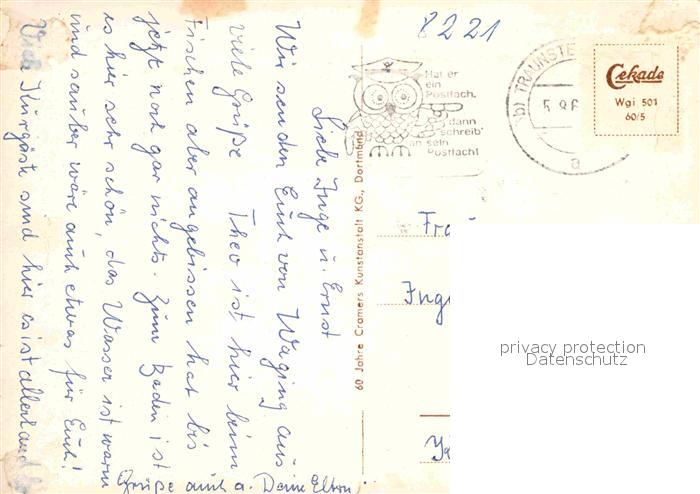 8221
Liebe Inge u. Ernst
Wir senden Euch von Waging aus
viele Grüße Theo ist hier beim
Fischen aber angebissen hat bis
jetzt noch gar nichts. Zum Baden ist
es hier sehr schön, das Wasser ist warm
und sauber wäre auch etwas für Euch!
Viele Kurgäste sind hier es ist allerhand
Grüße auch a. Deine Eltern
60 Jahre Cramers Kunstanstalt KG., Dortmund
Hat er
ein
Postfach,
dann
schreib'
an sein
Postfach!
b) TRAUNSTE
5.9.6
a
Cekade
Wgi 501
60/5
Fra
Inge
privacy protection
Datenschutz